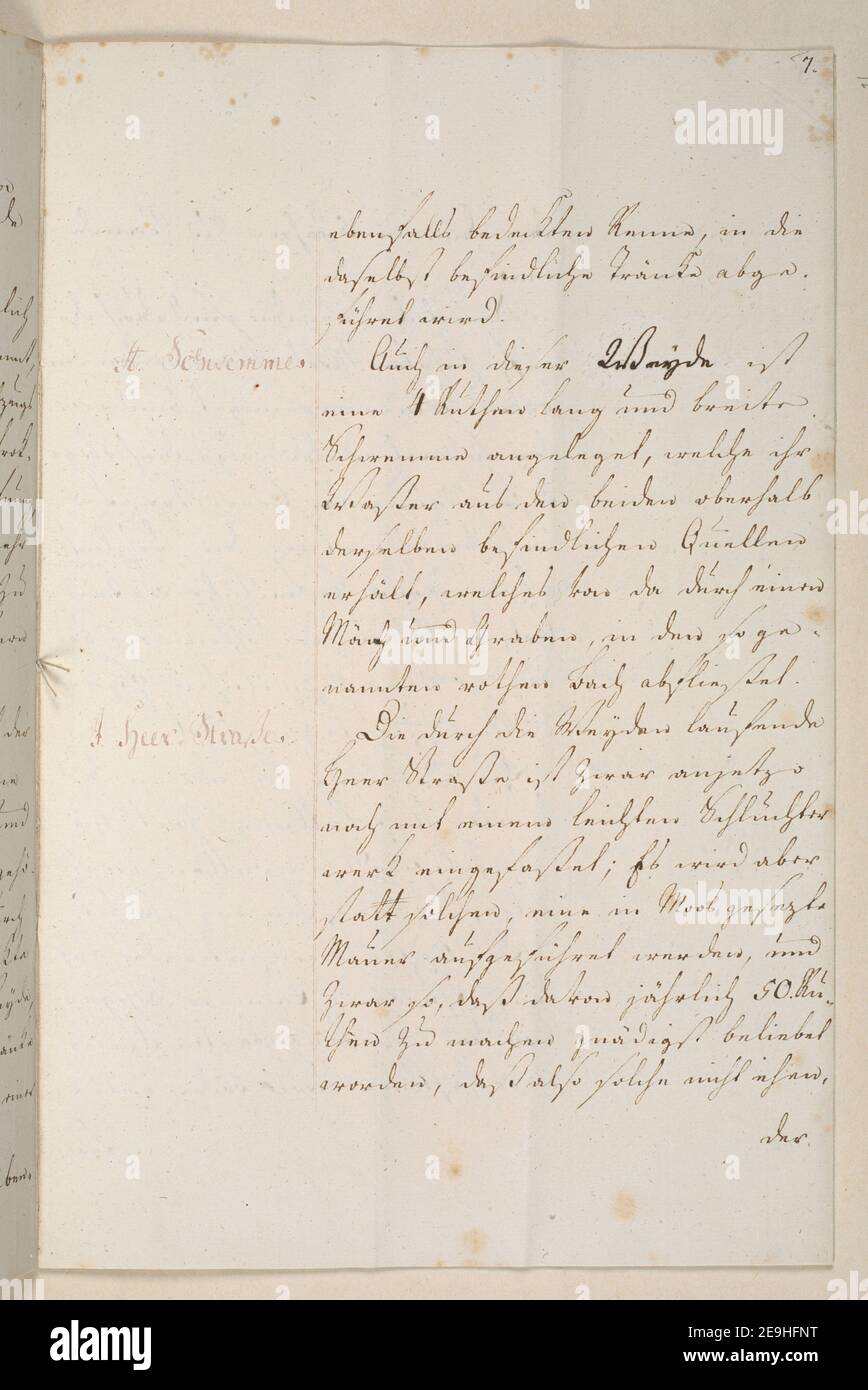 7.
ebenfalls bedeckten Renne, in die
daselbst befindliche Tränke abge-
führet wird.
H. Schwemme.
Auch in dieser Weyde ist
eine 4 Ruthen lang und breite
Schwemme angeleget, welche ihr
Waßer aus den beiden oberhalb
derselben befindlichen Quellen
erhält, welches von da durch einen
Mönch und Graben, in den so ge-
nannten rothen Bach abfließet.
J. Heer Straße.
Die durch die Weyden laufende
Heer Straße ist zwar anjetzo
noch mit einem leichten Schluchter
werk eingefaßet; Es wird aber
statt solchen, eine in Moos gesezte
Mauer aufgeführet werden, und
zwar so, daß davon jährlich 50. Ru-
then zu machen gnädigst beliebet
worden, daß also solche nicht ehen-
der
alamy
Image ID: 2E9HFNT
www.alamy.com